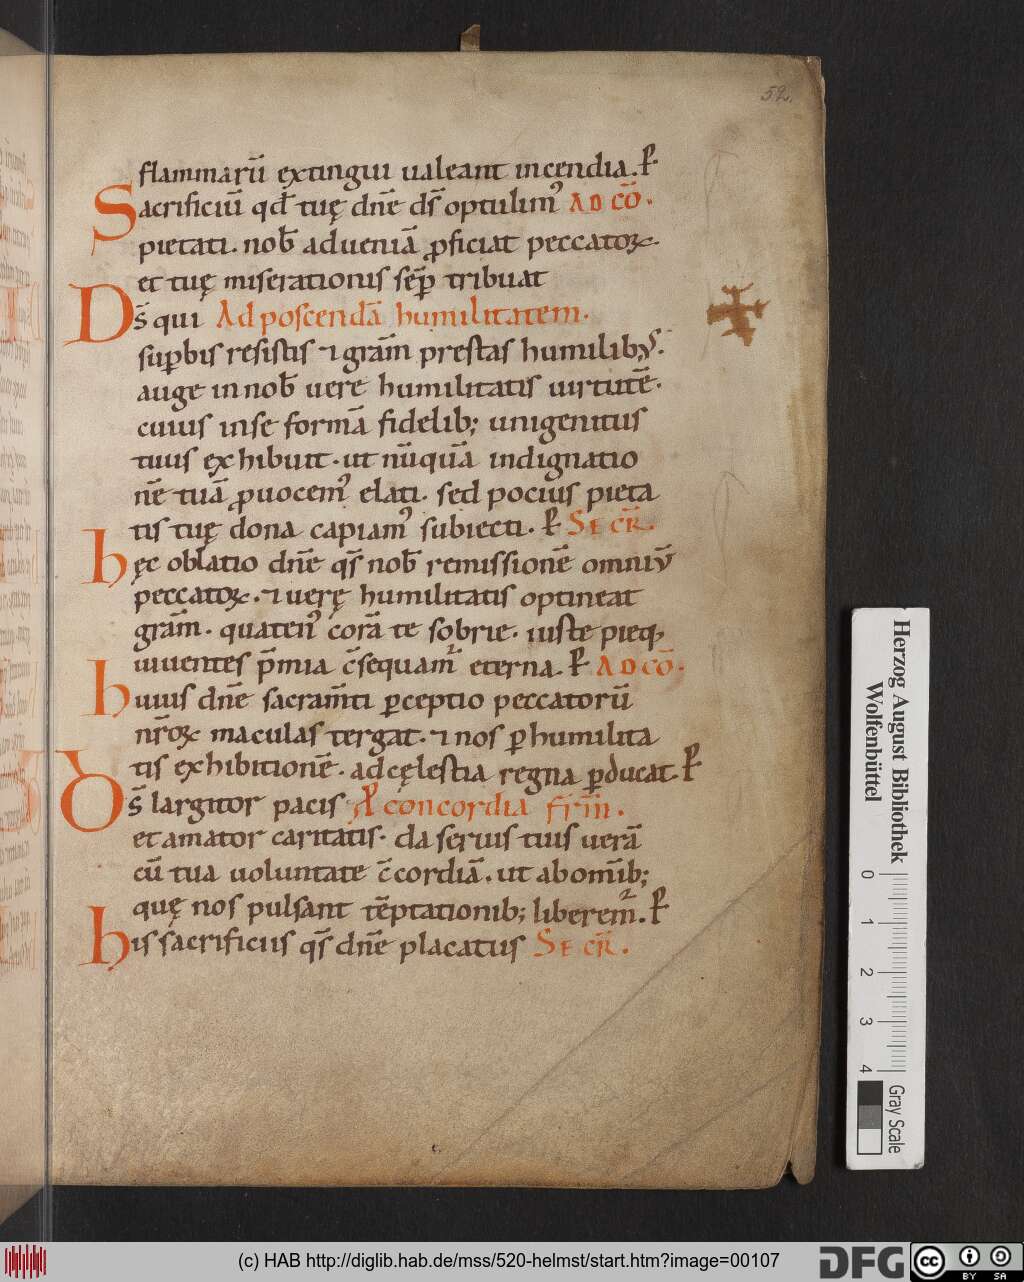 52.
flammarū extingui ualeant incendia. ꝑ
Sacrificiū qd̄ tuę dn̄e ds̄ optulimꝰ AD CŌ.
pietati. nob̄ adueniā ꝓficiat peccatoꝝ.
et tuę miserationis sēp tribuat
Ds̄ qui Ad poscendā humilitatem.
supbis resistis ⁊ grām prestas humilibꝰ.
auge in nob̄ uere humilitatis uirtutē.
cuius in se formā fidelib; unigenitus
tuus exhibuit. ut nūquā indignatio
nē tuā ꝓuocemꝰ elati. sed pocius pieta
tis tuę dona capiamꝰ subiecti. ꝑ SECR̄.
hęc oblatio dn̄e qs̄ nob̄ remissionē omniū
peccatoꝝ. ⁊ uerę humilitatis optineat
grām. quatenꝰ corā te sobrie. iuste pieq,
uiuentes p̄mia c̄sequam̄ eterna. ꝑ AD CŌ.
huius dn̄e sacram̄ti ꝑceptio peccatorū
nr̄oꝝ maculas tergat. ⁊ nos ꝑ humilita
tis exhibitionē. ad cęlestia regna ꝑducat. ꝑ
Ds̄ largitor pacis P concordia fr̄m.
et amator caritatis. da seruis tuis uerā
cū tua uoluntate c̄cordiā. ut ab om̄ib;
quę nos pulsant tēptationib; liberem̄. ꝑ
his sacrificiis qs̄ dn̄e placatus SECR̄.
Herzog August Bibliothek
Wolfenbüttel
0 1 2 3 4
Gray Scale
(c) HAB http://diglib.hab.de/mss/520-helmst/start.htm?image=00107
DFG
cc BY SA